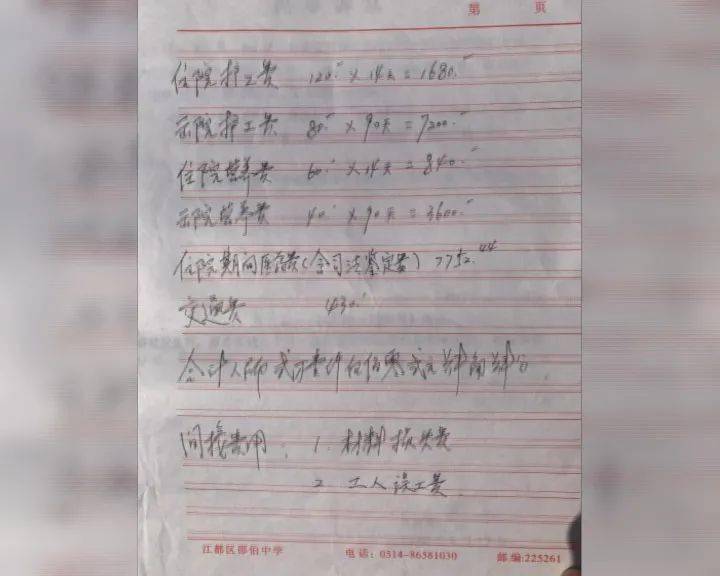 第 页
住院护工费 120.- × 14天 = 1680.-
出院护工费 80.- × 90天 = 7200.-
住院营养费 60.- × 14天 = 840.-
出院营养费 40.- × 90天 = 3600.-
住院期间医药费(含司法鉴定费) 7752.44
交通费 430.-
合计人民币贰万壹仟伍佰零贰元肆角肆分.
间接费用: 1. 材料损失费
2. 工人误工费
江都区邵伯中学 电话：0514-86581030 邮编:225261